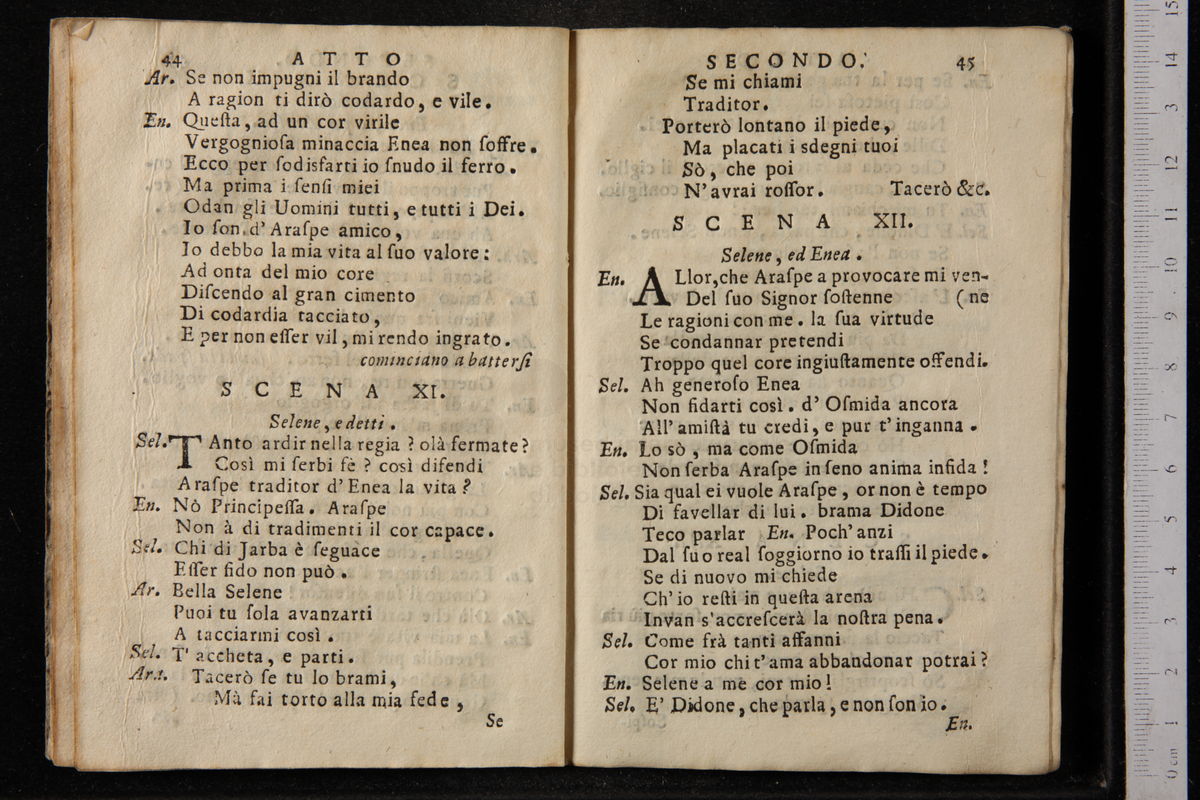 44 ATTO
Ar. Se non impugni il brando
A ragion ti dirò codardo, e vile.
En. Queſta, ad un cor virile
Vergognioſa minaccia Enea non ſoffre.
Ecco per ſodisfarti io ſnudo il ferro.
Ma prima i ſenſi miei
Odan gli Uomini tutti, e tutti i Dei.
Io ſon d' Araſpe amico,
Io debbo la mia vita al ſuo valore:
Ad onta del mio core
Diſcendo al gran cimento
Di codardia tacciato,
E per non eſſer vil, mi rendo ingrato.
cominciano a batterſi
SCENA XI.
Selene, e detti.
Sel. TAnto ardir nella regia? olà fermate?
Così mi ſerbi fè? così difendi
Araſpe traditor d' Enea la vita?
En. Nò Principeſſa. Araſpe
Non à di tradimenti il cor capace.
Sel. Chi di Jarba è ſeguace
Eſſer fido non può.
Ar. Bella Selene
Puoi tu ſola avanzarti
A tacciarmi così.
Sel. T' accheta, e parti.
Ar. Tacerò ſe tu lo brami,
Mà fai torto alla mia fede,
Se
SECONDO. 45
Se mi chiami
Traditor.
Porterò lontano il piede,
Ma placati i sdegni tuoi
Sò, che poi
N' avrai roſſor. Tacerò &c.
SCENA XII.
Selene, ed Enea.
En. ALlor, che Araſpe a provocare mi ven-
Del ſuo Signor ſoſtenne (ne
Le ragioni con me. la ſua virtude
Se condannar pretendi
Troppo quel core ingiuſtamente offendi.
Sel. Ah generoſo Enea
Non fidarti così. d' Oſmida ancora
All' amiſtà tu credi, e pur t' inganna.
En. Lo sò, ma come Oſmida
Non ſerba Araſpe in ſeno anima infida!
Sel. Sia qual ei vuole Araſpe, or non è tempo
Di favellar di lui. brama Didone
Teco parlar En. Poch' anzi
Dal ſuo real ſoggiorno io traſſi il piede.
Se di nuovo mi chiede
Ch' io reſti in queſta arena
Invan s'accreſcerà la noſtra pena.
Sel. Come frà tanti affanni
Cor mio chi t' ama abbandonar potrai?
En. Selene a me cor mio!
Sel. E' Didone, che parla, e non ſon io.
En.